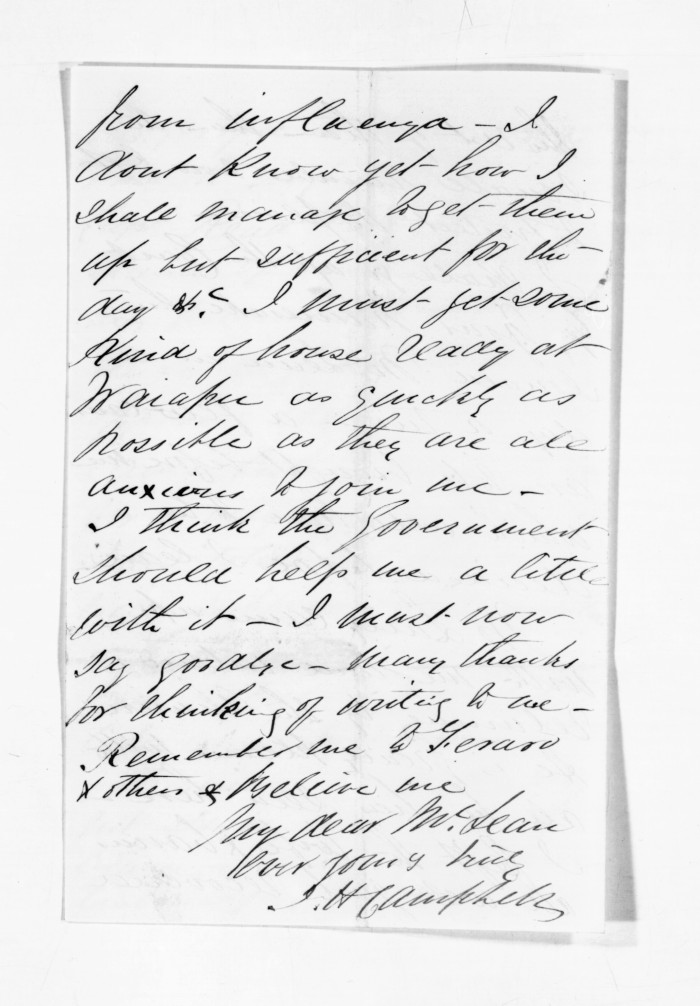 from influenza - I
dont know yet how I
shall manage to get them
up but sufficient for the
day &c. I must get some
kind of house ready at
Waiapu as quickly as
possible as they are all
anxious to join me -
I think the Government
should help me a little
with it - I must now
say goodbye - many thanks
for thinking of writing to me -
Remember me to
& others & believe me
My dear McLean
Ever yours truly
J.H Campbell